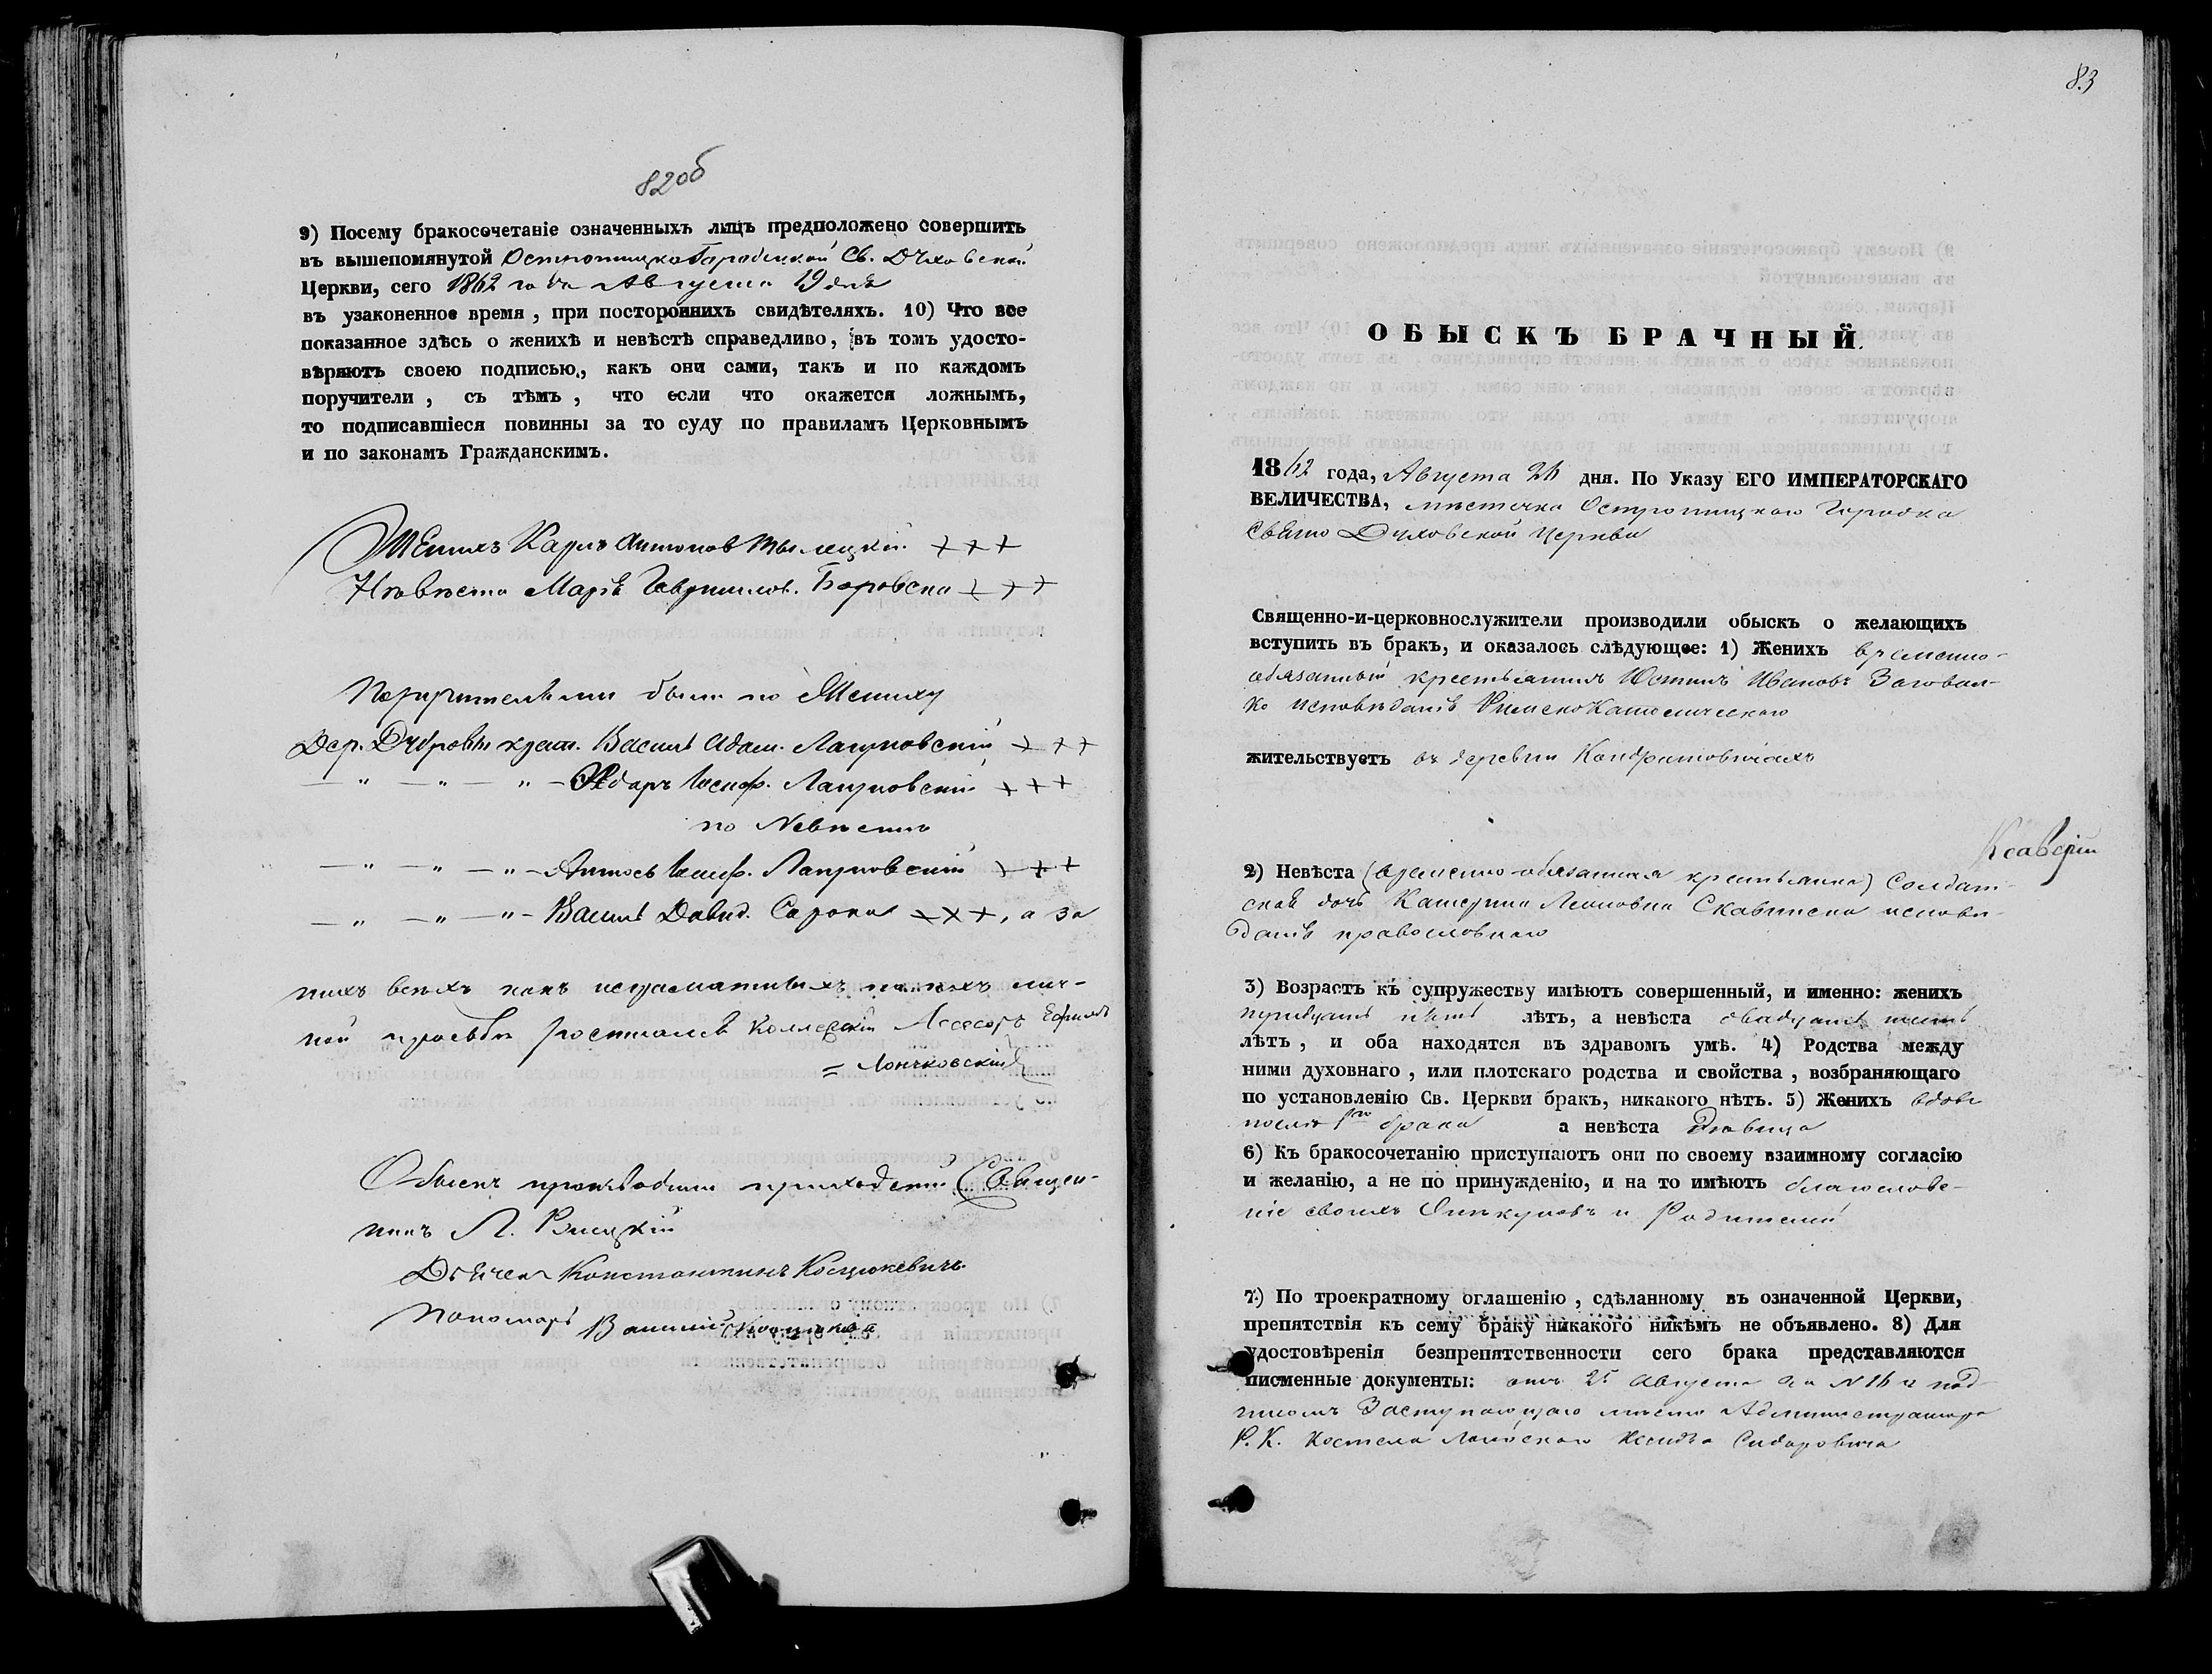 82об
9) Посему бракосочетаніе означенныхъ лицъ предположено совершить
въ вышепомянутой Острошицкогородецкой Св. Духовской
Церкви, сего 1862 года Августа 19 дня
въ узаконенное время, при постороннихъ свидѣтеляхъ. 10) Что все
показанное здѣсь о женихѣ и невѣстѣ справедливо, въ томъ удосто-
вѣряютъ своею подписью, какъ они сами, такъ и по каждомъ
поручители, съ тѣмъ, что если что окажется ложнымъ,
то подписавшіеся повинны за то суду по правиламъ Церковнымъ
и по законамъ Гражданскимъ.
Женихъ Карлъ Антонов +++
Невѣста Марія Гаврилов. Боровска +++
Поручителями были по Жениху
Дер. Дубровы крест. Василь Адам. Лапуновскій +++
— " — " — " — Іосиф. Лапуновскій +++
по Невѣстѣ
— " — " — " — Антось Іосиф. Лапуновскій +++
— " — " — " — Василь Давид. Сорока +++, а за
нихъ всѣхъ какъ неграмотныхъ по ихъ лич-
ной прозьбѣ росписался Коллежскій Ассесоръ
= Лончковскій
Обыскъ производили приходскій Священ-
никъ Л.
Дьячекъ Константинъ Коцюкевичъ
Пономарь
83
ОБЫСКЪ БРАЧНЫЙ.
1862 года, Августа 26 дня. По Указу ЕГО ИМПЕРАТОРСКАГО
ВЕЛИЧЕСТВА, мѣстечка Острошицкаго Городка
Свято Духовской Церкви
Священно-и-церковнослужители производили обыскъ о желающихъ
вступить въ бракъ, и оказалось слѣдующее: 1) Женихъ временно-
обязанный крестьянинъ Юстинъ Ивановъ Заговал-
ко исповѣданія Римскокатолическаго
жительствуетъ въ деревни Кондратовичахъ
Ксаверій
2) Невѣста (временно-обязанная крестьянка) Солдат-
ская дочь Катерина Леоновна Скавинска исповѣ-
данія православнаго
3) Возрастъ къ супружеству имѣютъ совершенный, и именно: женихъ
тридцать пять лѣтъ, а невѣста двадцать шесть
лѣтъ, и оба находятся въ здравомъ умѣ. 4) Родства между
ними духовнаго, или плотскаго родства и свойства, возбраняющаго
по установленію Св. Церкви бракъ, никакого нѣтъ. 5) Женихъ вдовъ
послѣ 1го брака а невѣста дѣвица
6) Къ бракосочетанію приступаютъ они по своему взаимному согласію
и желанію, а не по принужденію, и на то имѣютъ благослове-
ніе своихъ Опекуновъ и Родителей
7) По троекратному оглашенію, сдѣланному въ означенной Церкви,
препятствія къ сему браку никакого никѣмъ не объявлено. 8) Для
удостовѣренія безпрепятственности сего брака представляются
писменные документы: отъ 25 Августа за N 16 и под
писомъ Заступающаго мѣсто Администратора
Р. К. Костела Логойскаго Ксендза Сидоровича